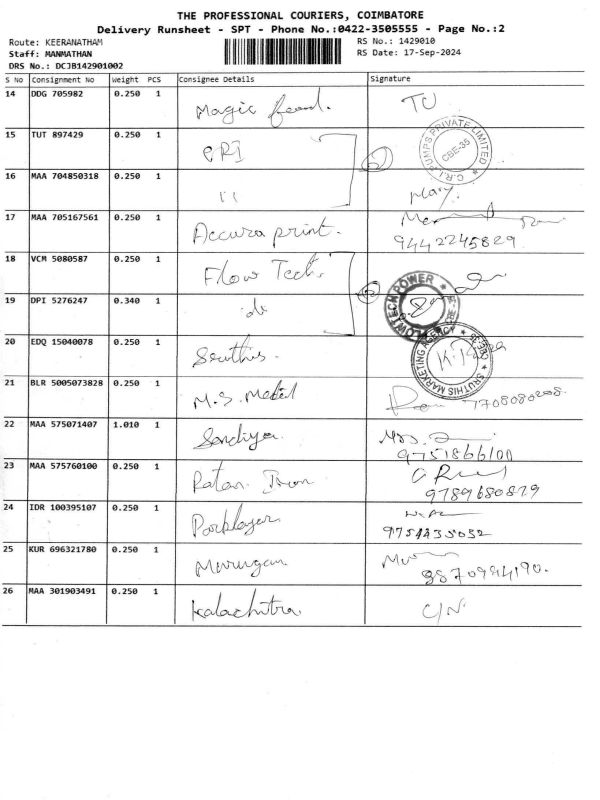 THE PROFESSIONAL COURIERS, COIMBATORE
Delivery Runsheet - SPT - Phone No.:0422-3505555 - Page No.:2
Route: KEERANATHAM RS No.: 1429010
Staff: MANMATHAN RS Date: 17-Sep-2024
DRS No.: DCJB142901002
S No Consignment No Weight PCS Consignee Details Signature
14 DDG 705982 0.250 1 Magic TU
15 TUT 897429 0.250 1 CRI C.R.I. PUMPS PRIVATE LIMITED CBE-35
16 MAA 704850318 0.250 1 " Mary.
17 MAA 705167561 0.250 1 Accura print. 9442245829
18 VCM 5080587 0.250 1 Flow Tech. FLOWTECH POWER
19 DPI 5276247 0.340 1 do
20 EDQ 15040078 0.250 1 Sruthis. SRUTHIS MARKETING AGENCY
21 BLR 5005073828 0.250 1 M.S. 7708080208.
22 MAA 575071407 1.010 1 Sandiya. 9751866100
23 MAA 575760100 0.250 1 Ratan 9789680879
24 IDR 100395107 0.250 1
25 KUR 696321780 0.250 1 Murugan
26 MAA 301903491 0.250 1 Kalachitra. C/N.